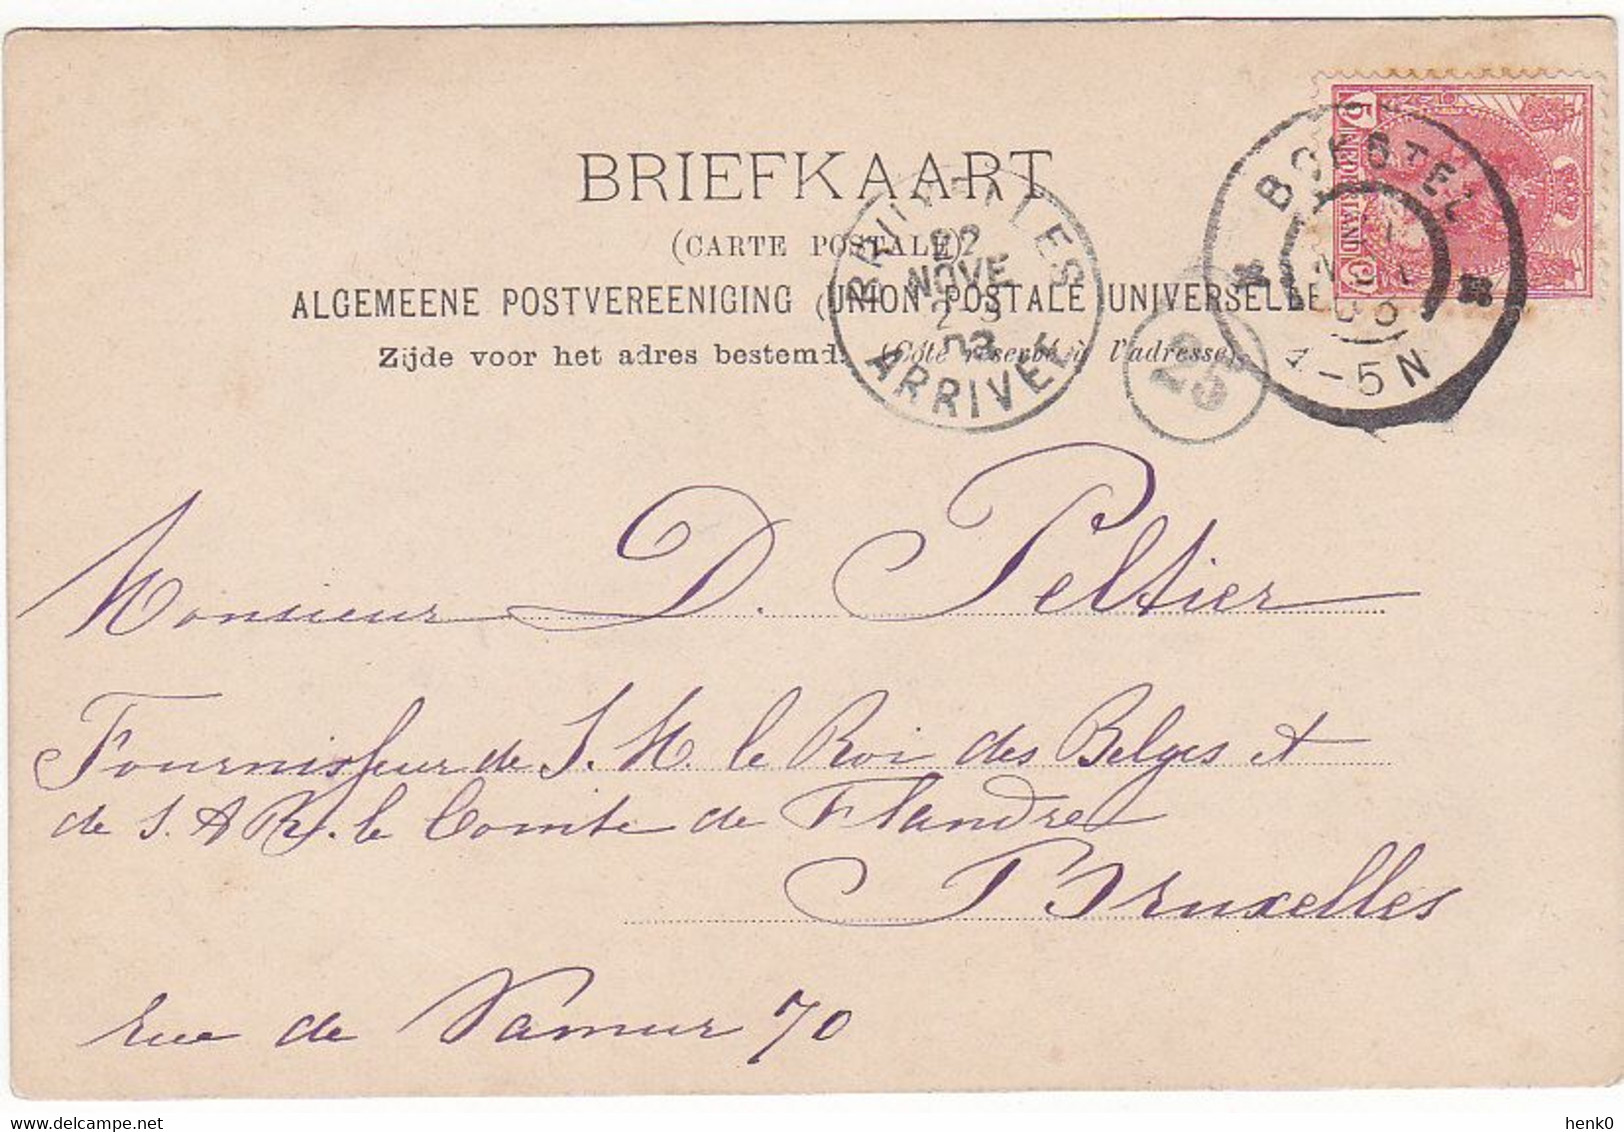 BRIEFKAART
(CARTE POSTALE)
ALGEMEENE POSTVEREENIGING (UNION POSTALE UNIVERSELLE
Zijde voor het adres bestemd. (Côté réservé à l'adresse).
5 NEDERLAND Ct
BOXTEL
4-5N
BRUXELLES
22
NOVE
03
ARRIVEE
Monsieur D. Peltier
Fournisseur de S. M. le Roi des Belges et
de S. A R. le Comte de Flandre
Bruxelles
rue de Namur 70
Delcampe.net
henk0